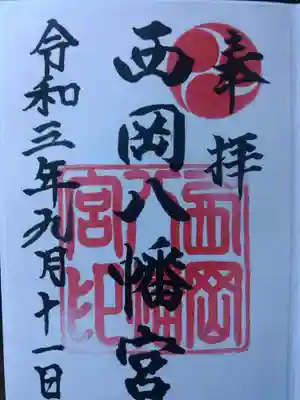 奉拝
西岡八幡宮
西岡八幡宮印
令和三年九月十一日